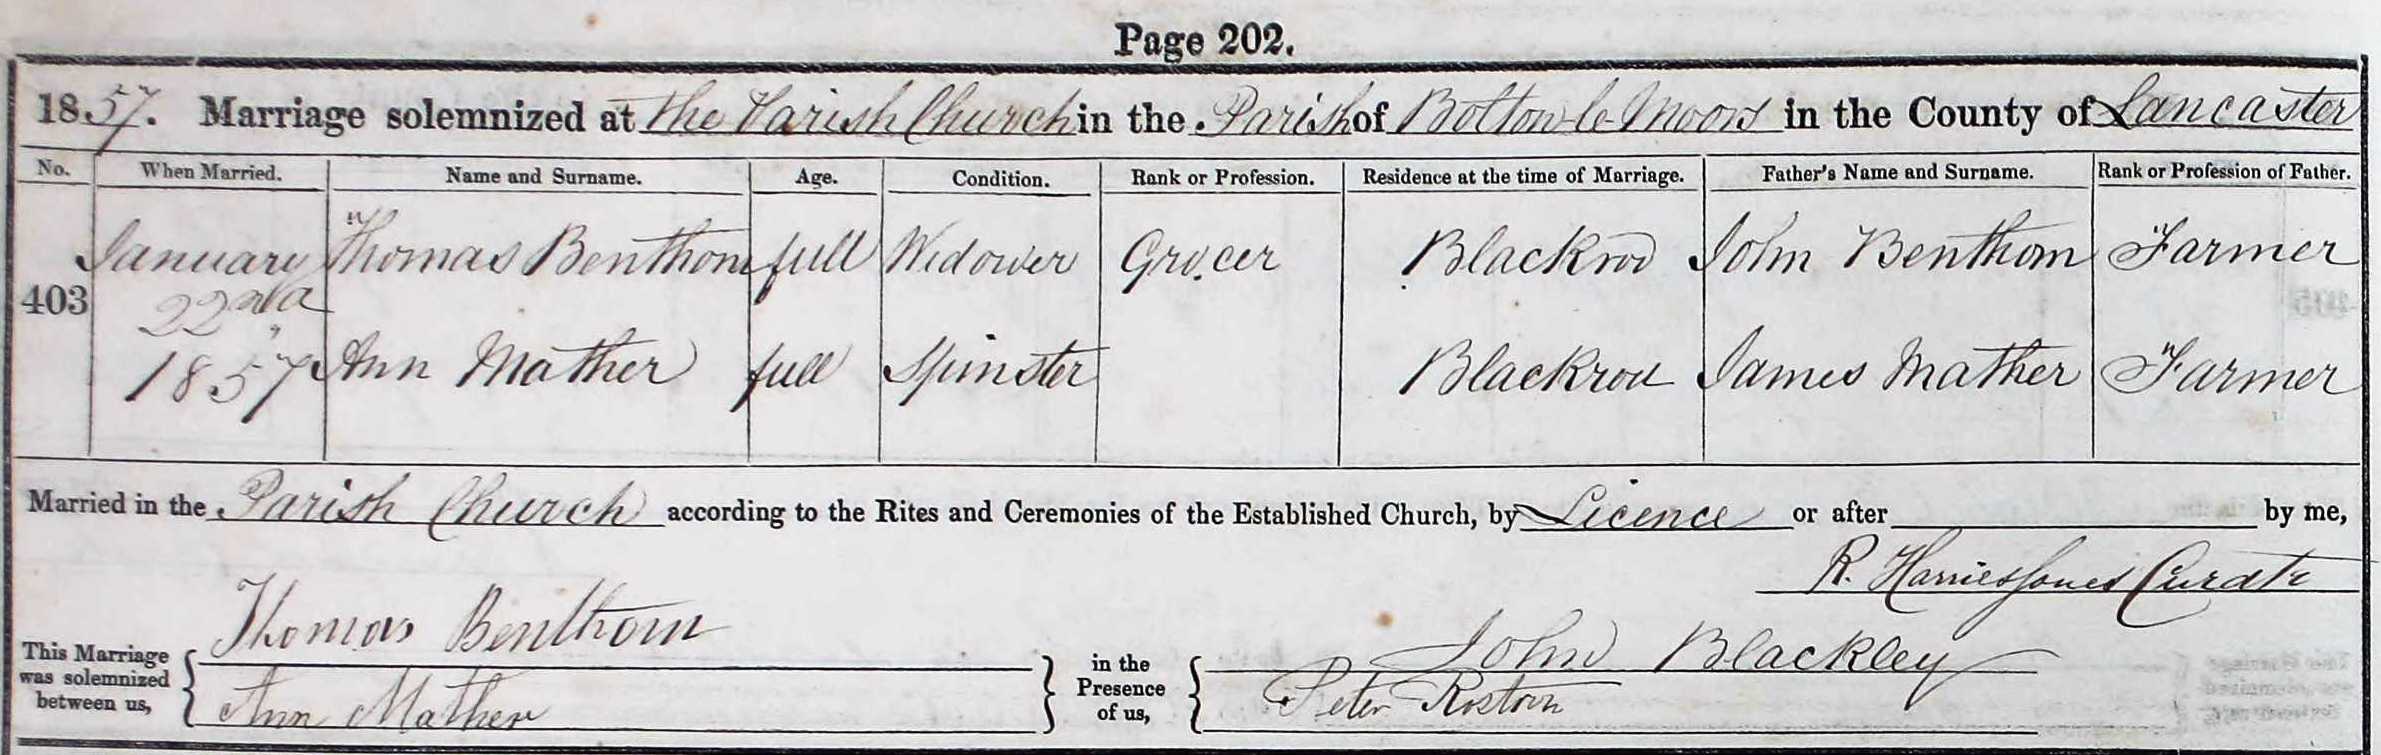 Page 202.
1857. Marriage solemnized at The Parish Church in the Parish of Bolton le Moors in the County of Lancaster
No. When Married. Name and Surname. Age. Condition. Rank or Profession. Residence at the time of Marriage. Father's Name and Surname. Rank or Profession of Father.
January Thomas Benthom full Widower Grocer Blackrod John Benthom Farmer
403 22nd
1857 Ann Mather full Spinster Blackrod James Mather Farmer
Married in the Parish Church according to the Rites and Ceremonies of the Established Church, by Licence or after by me,
R. Harries Jones Curate
Thomas Benthom
This Marriage was solemnized between us,
Ann Mather
in the Presence of us,
John Blackley
Peter Rostorn